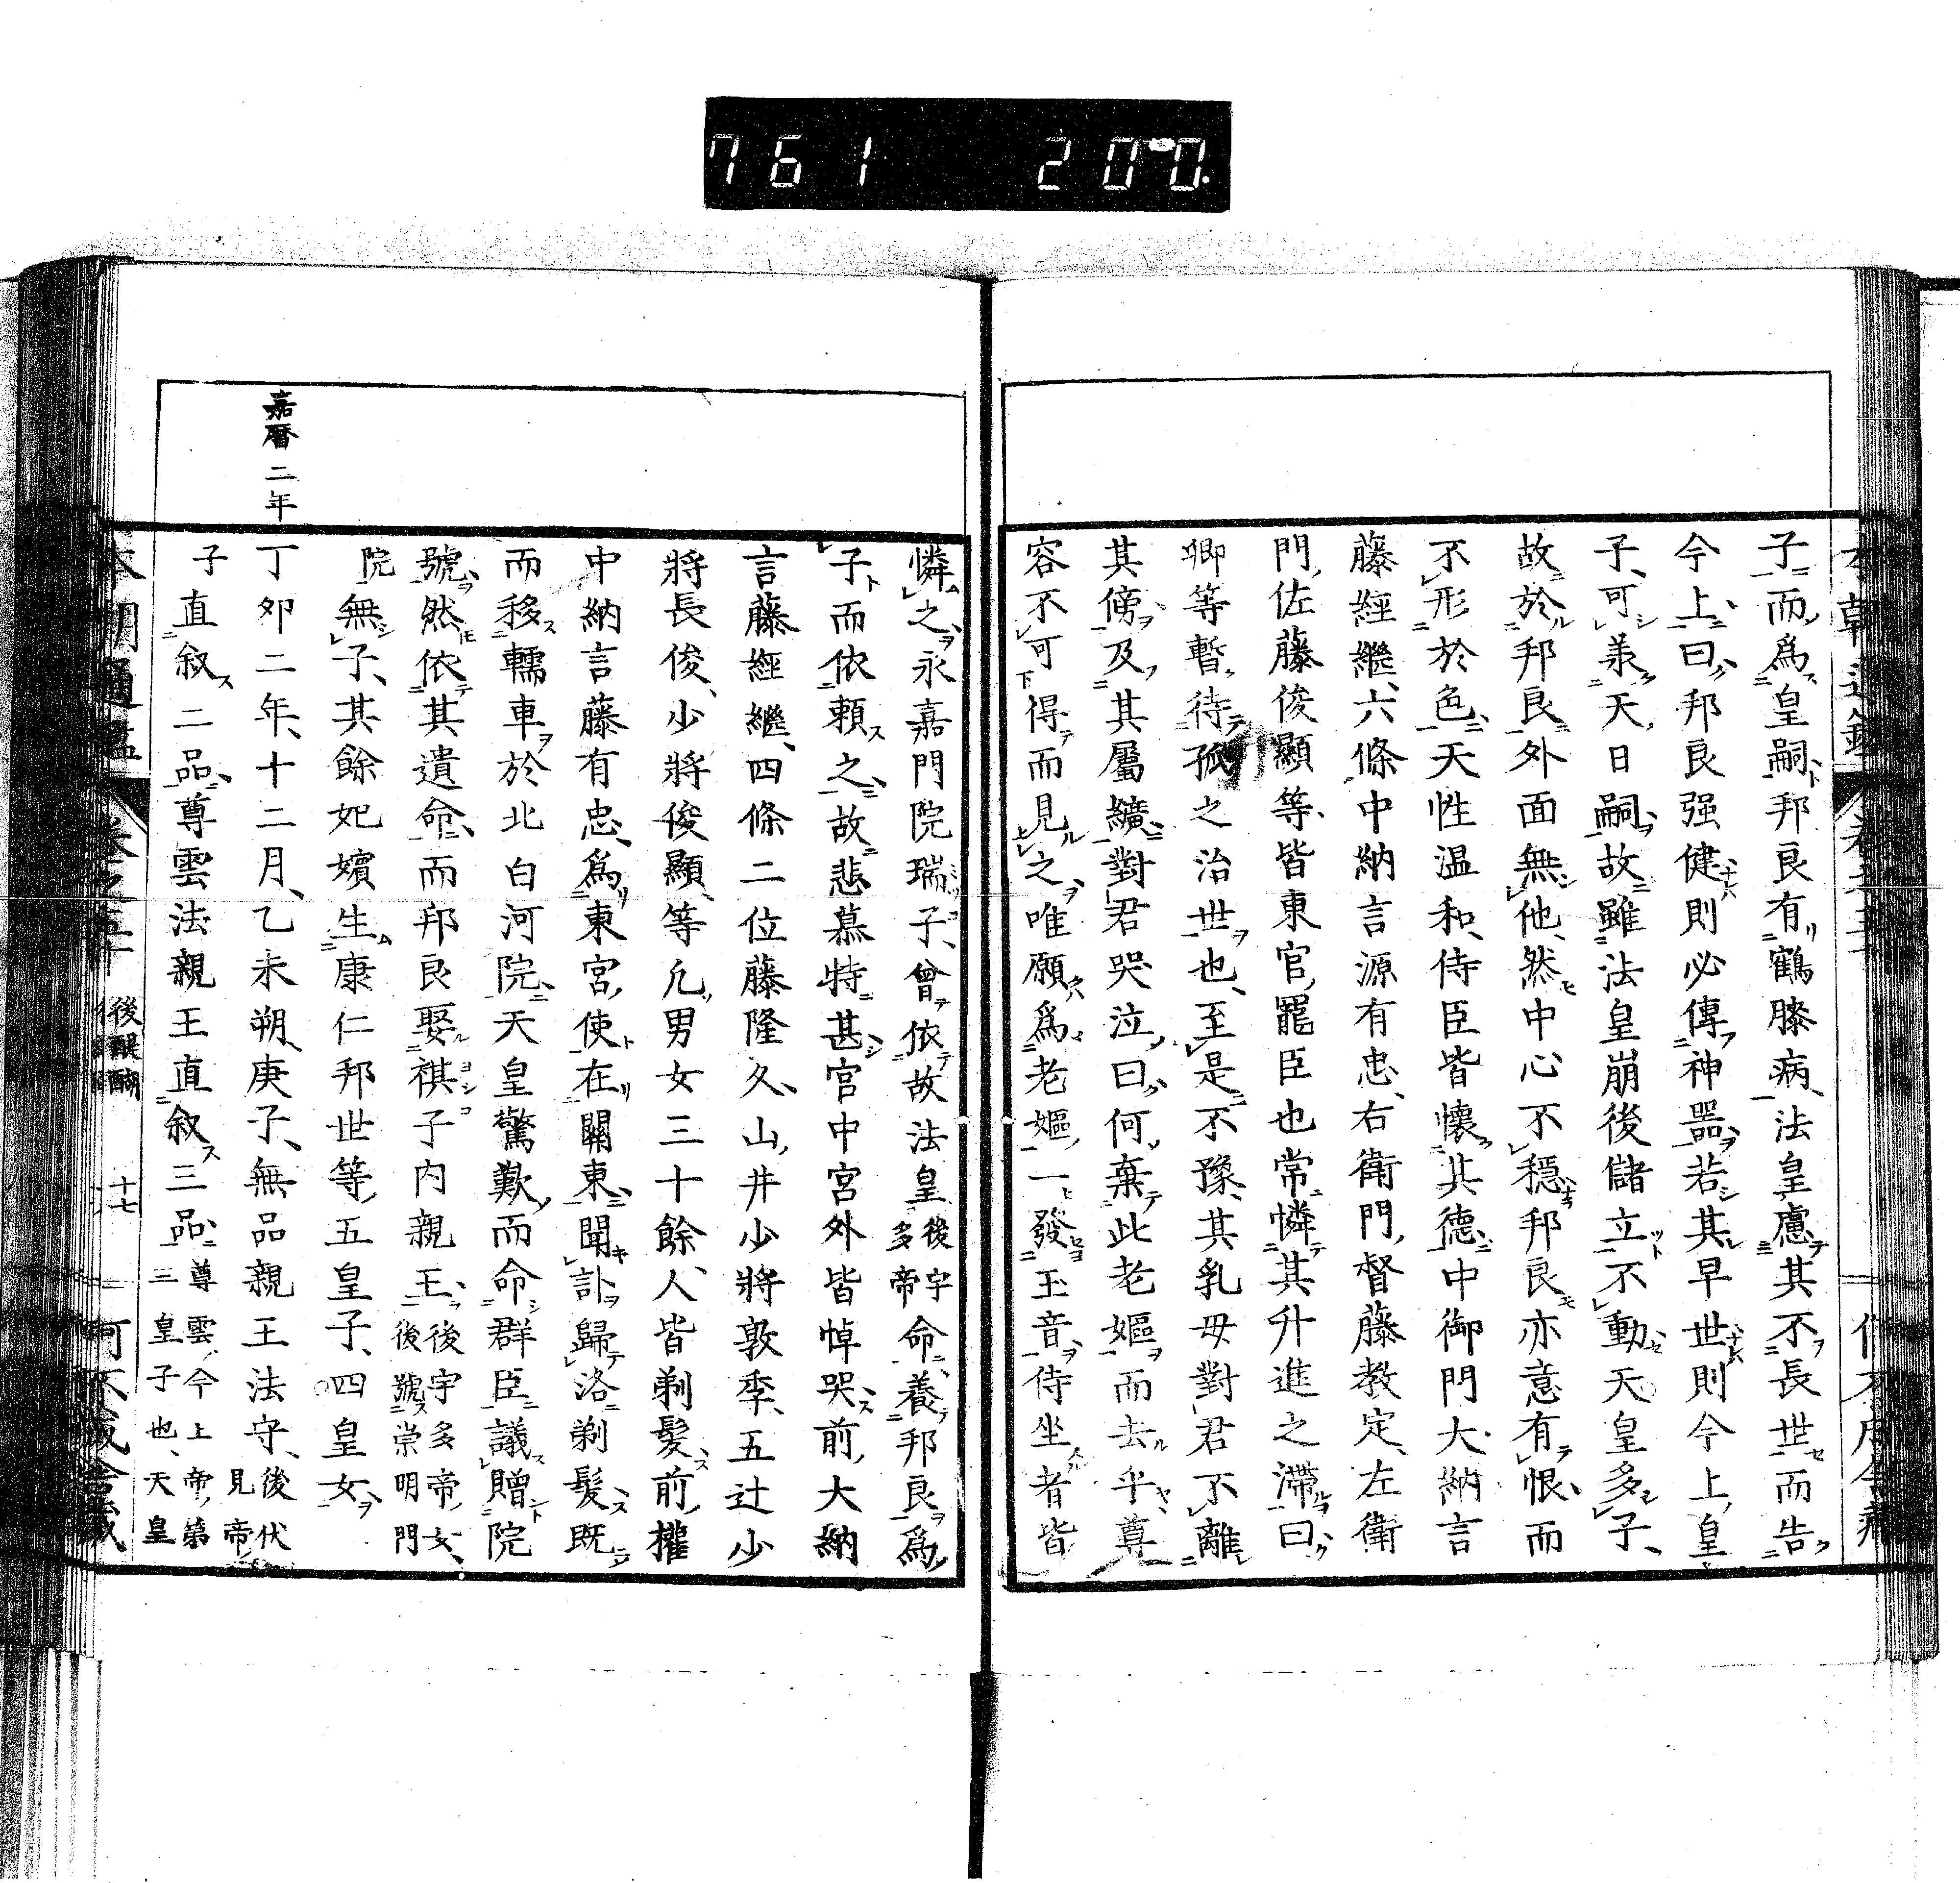 761 200.
子而爲皇嗣邦良有鶴膝病法皇慮其不長世而告
今上曰邦良强健則必傳神器若其早世則今上皇
子可承天日嗣故雖法皇崩後儲立不動天皇多子
故於邦良外面無他然中心不穩邦良亦意有恨而
不形於色天性温和侍臣皆懷其德中御門大納言
藤經繼六條中納言源有忠右衛門督藤教定左衛
門佐藤俊顯等皆東官罷臣也常憐其升進之滯曰
卿等暫待孤之治世也至是不豫其乳母對君不離
其傍及其屬纊對君哭泣曰何棄此老嫗而去乎尊
容不可得而見之唯願爲老嫗一發玉音侍坐者皆
憐之永嘉門院瑞子曾依故法皇後宇多帝命養邦良爲
子而依頼之故悲慕特甚宮中宮外皆悼哭前大納
言藤經繼四條二位藤隆久山井少將敦季五辻少
將長俊少將俊顯等凡男女三十餘人皆剃髮前權
中納言藤有忠爲東宮使在關東聞訃歸洛剃髮既
而移轜車於北白河院天皇驚歎而命群臣議贈院
號然依其遺命而邦良娶祺子內親王後宇多帝女後號崇明門
院無子其餘妃嬪生康仁邦世等五皇子四皇女
嘉曆二年
丁卯二年十二月乙未朔庚子無品親王法守後伏見帝
子直叙二品尊雲法親王直叙三品尊雲今上帝第三皇子也天皇
本朝通鑑 卷之五十 後醍醐 十七